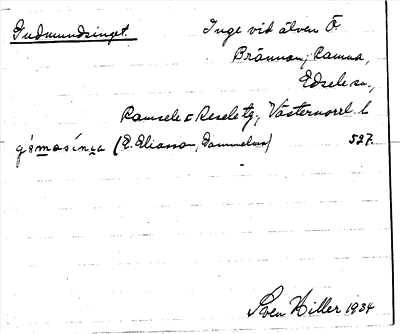 Gudmundsinget. Inge vid älven Ö.
Brännan, Ramna,
Edsele sn.,
Ramsele o Resele tg, Västernorrl. l
(E. Eliasson, 527.
Sven Hiller 1934